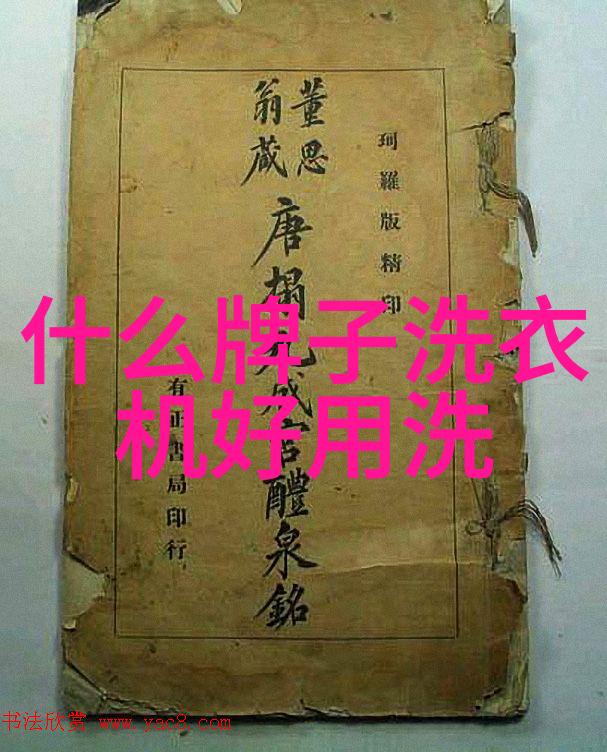 珂羅版精印
董思
翁藏
唐搨九成宮醴泉銘
有正書局印行
什么牌子洗衣
机好用洗
书法欣赏 www.yac8.com